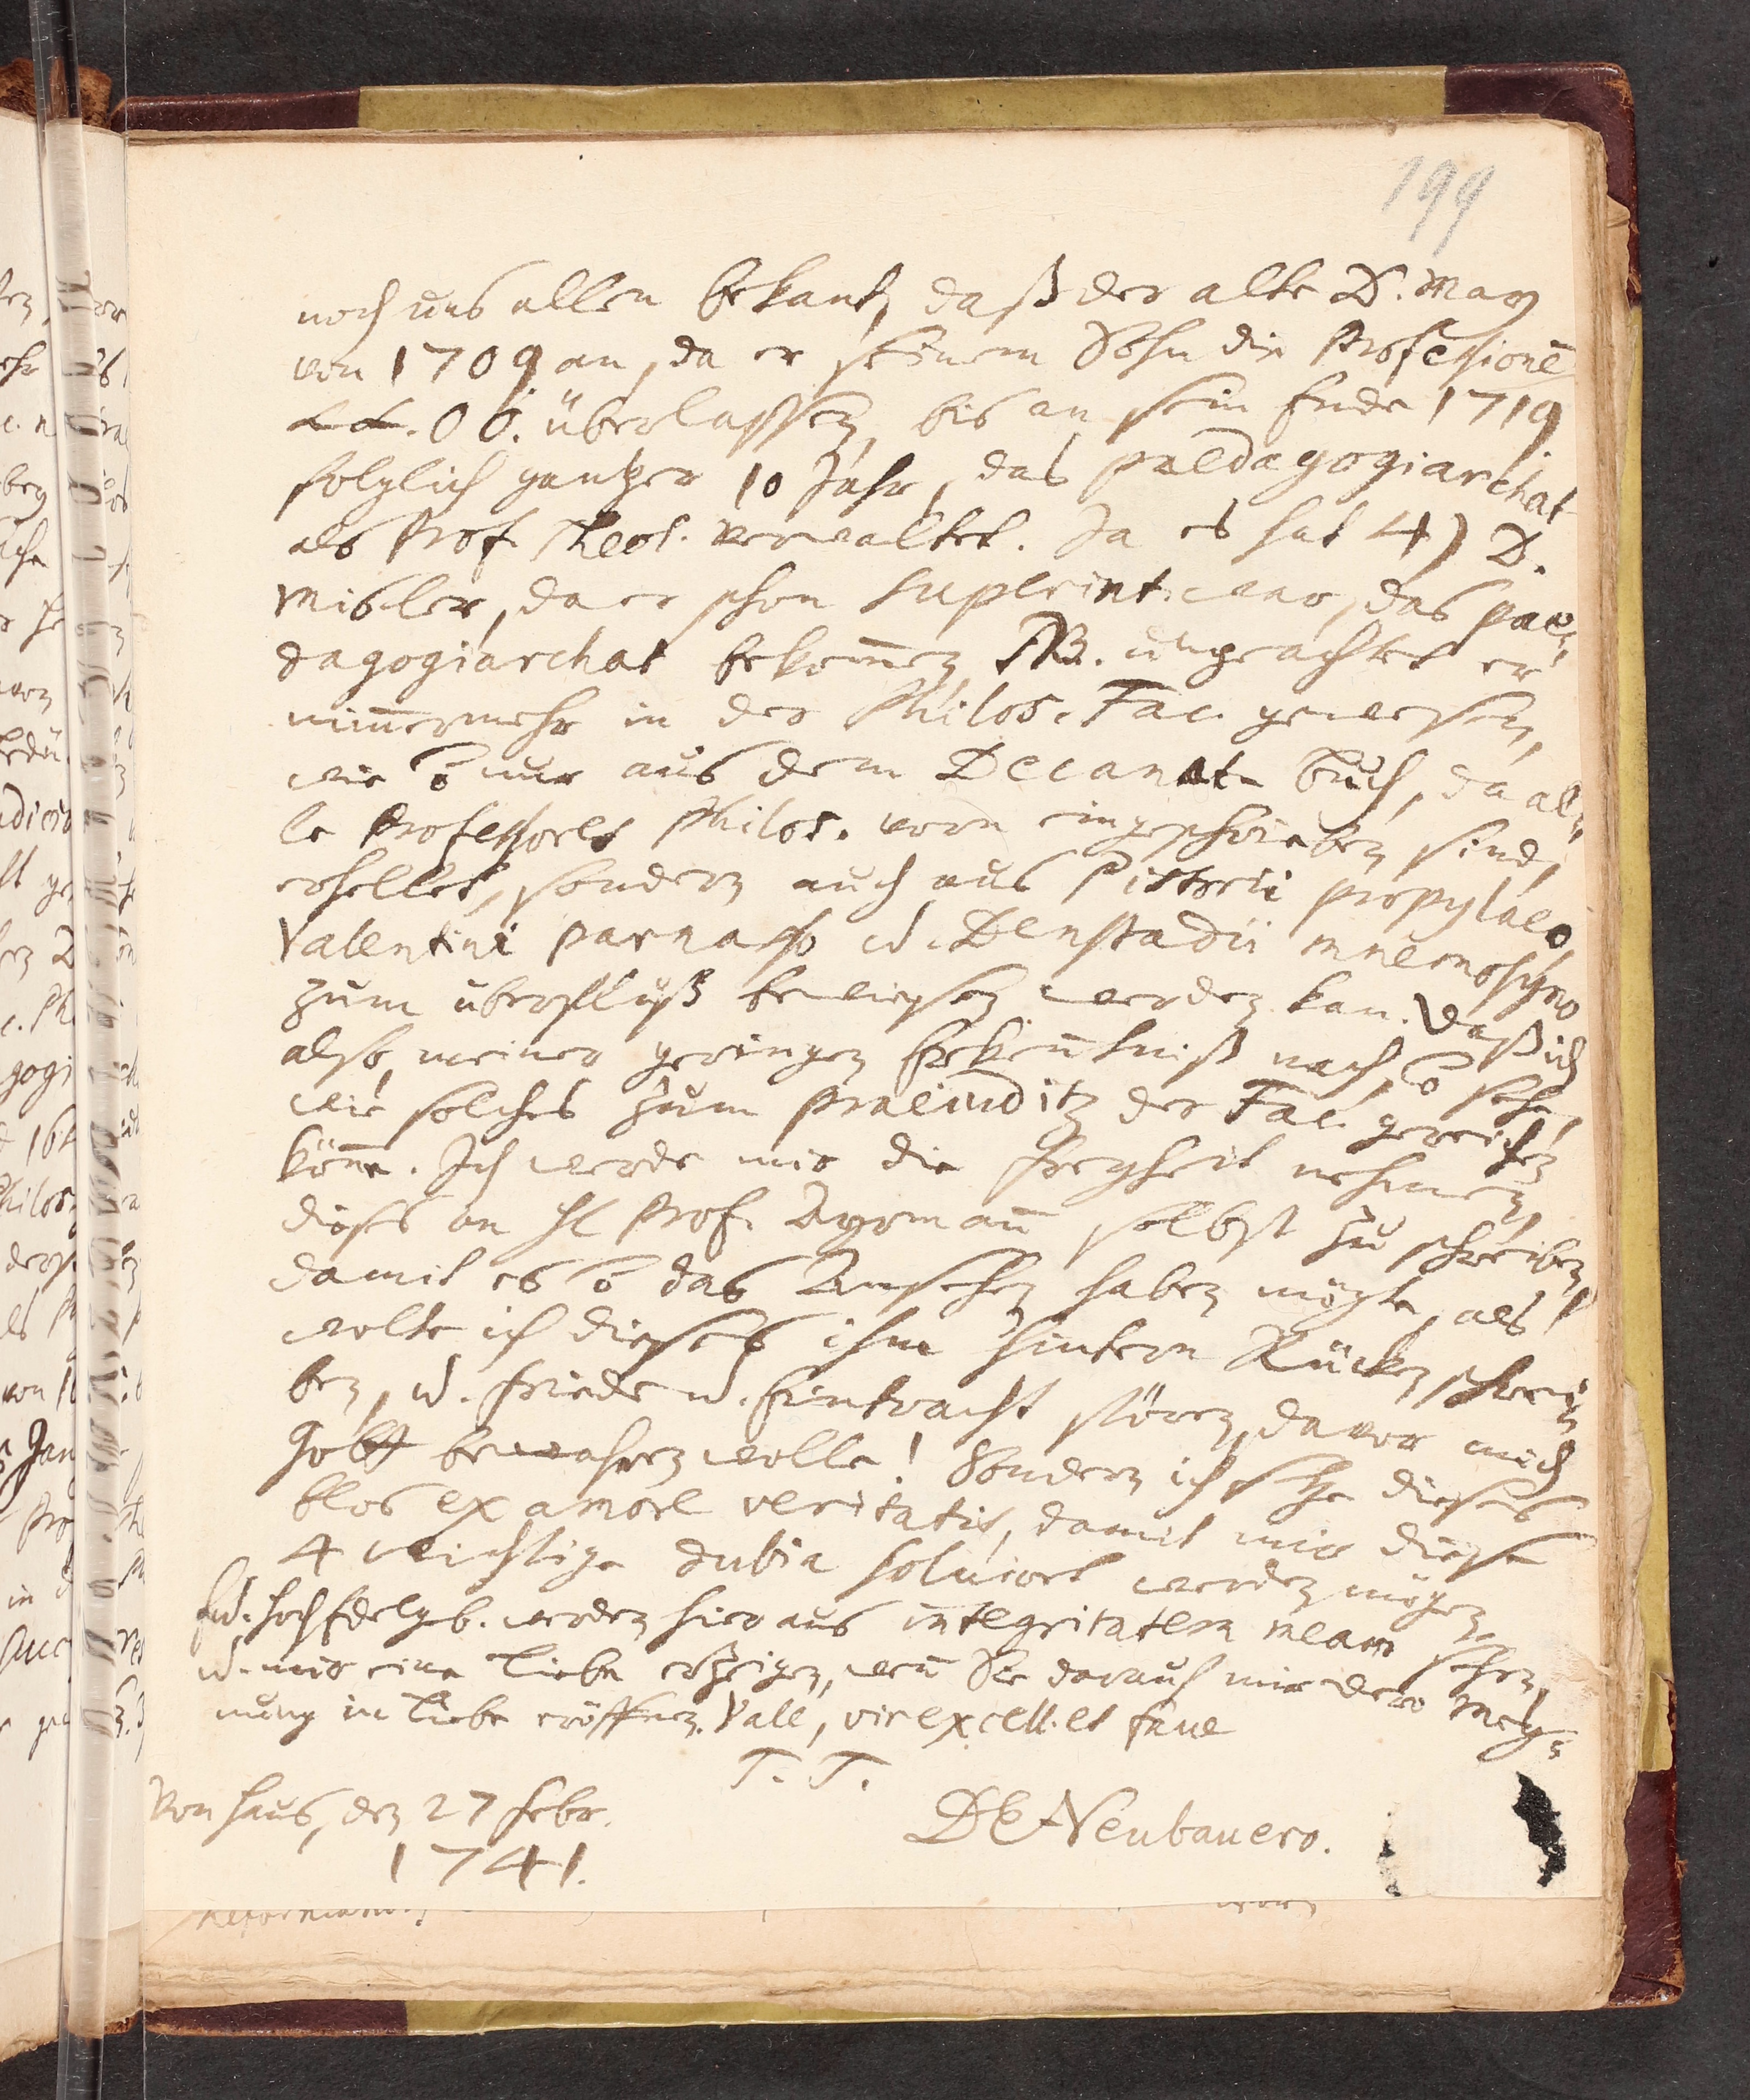 199
noch uns allen bekant, daß der alte D. May
von 1709 an, da er seinem Sohn die Professionē
LL. OO. überlassen, bis an sein Ende 1719
folglich gantzer 10 Jahr, das paedagogiarchat
als Prof. Theol. verwaltet. Ja es hat 4) D.
Misler, da er schon Superint. war, das pae-
dagogiarchat bekom̅en, NB. ungeachtet er
nim̅ermehr in der Philos. Fac. gewesen,
wie nur aus dem Decanat-Buch, da al-
le Professores Philos. vorn eingeschrieben sind,
erhellet, sondern auch aus Pistorii propylaeo
Valentini parnasso u. Denstadii mnemosyno
zum überfluß bewiesen werden kan. Daß ich
also, meiner geringen Erkentniß nach, sehe,
wie solches zum praeiuditz der Fac. gereichen
kön̅e. Ich werde mir die Freyheit nehmen,
dieses an H. Prof. Ayrman̅ selbst zu schreiben,
damit es das Ansehen haben mögte, als
wolte ich dieses ihm hintern Rücken schrei-
ben, u. Friede u. Eintracht stören, davor mich
Gott bewahren wolle! Sondern ich setze dieses
blos ex amore veritatis, damit mir diese
4 wichtige dubia solviret werden mögen.
Ew. HochEdelgb. werden hieraus integritatem meam sehen,
u. mir eine Liebe erzeigen, wen̅ Sie darauf mir dero Mey-
nung in Liebe eröffnen. Vale, vir excell. et fave
T. T.
Von Haus, den 27 Febr.
1741.
DE Neubauero.